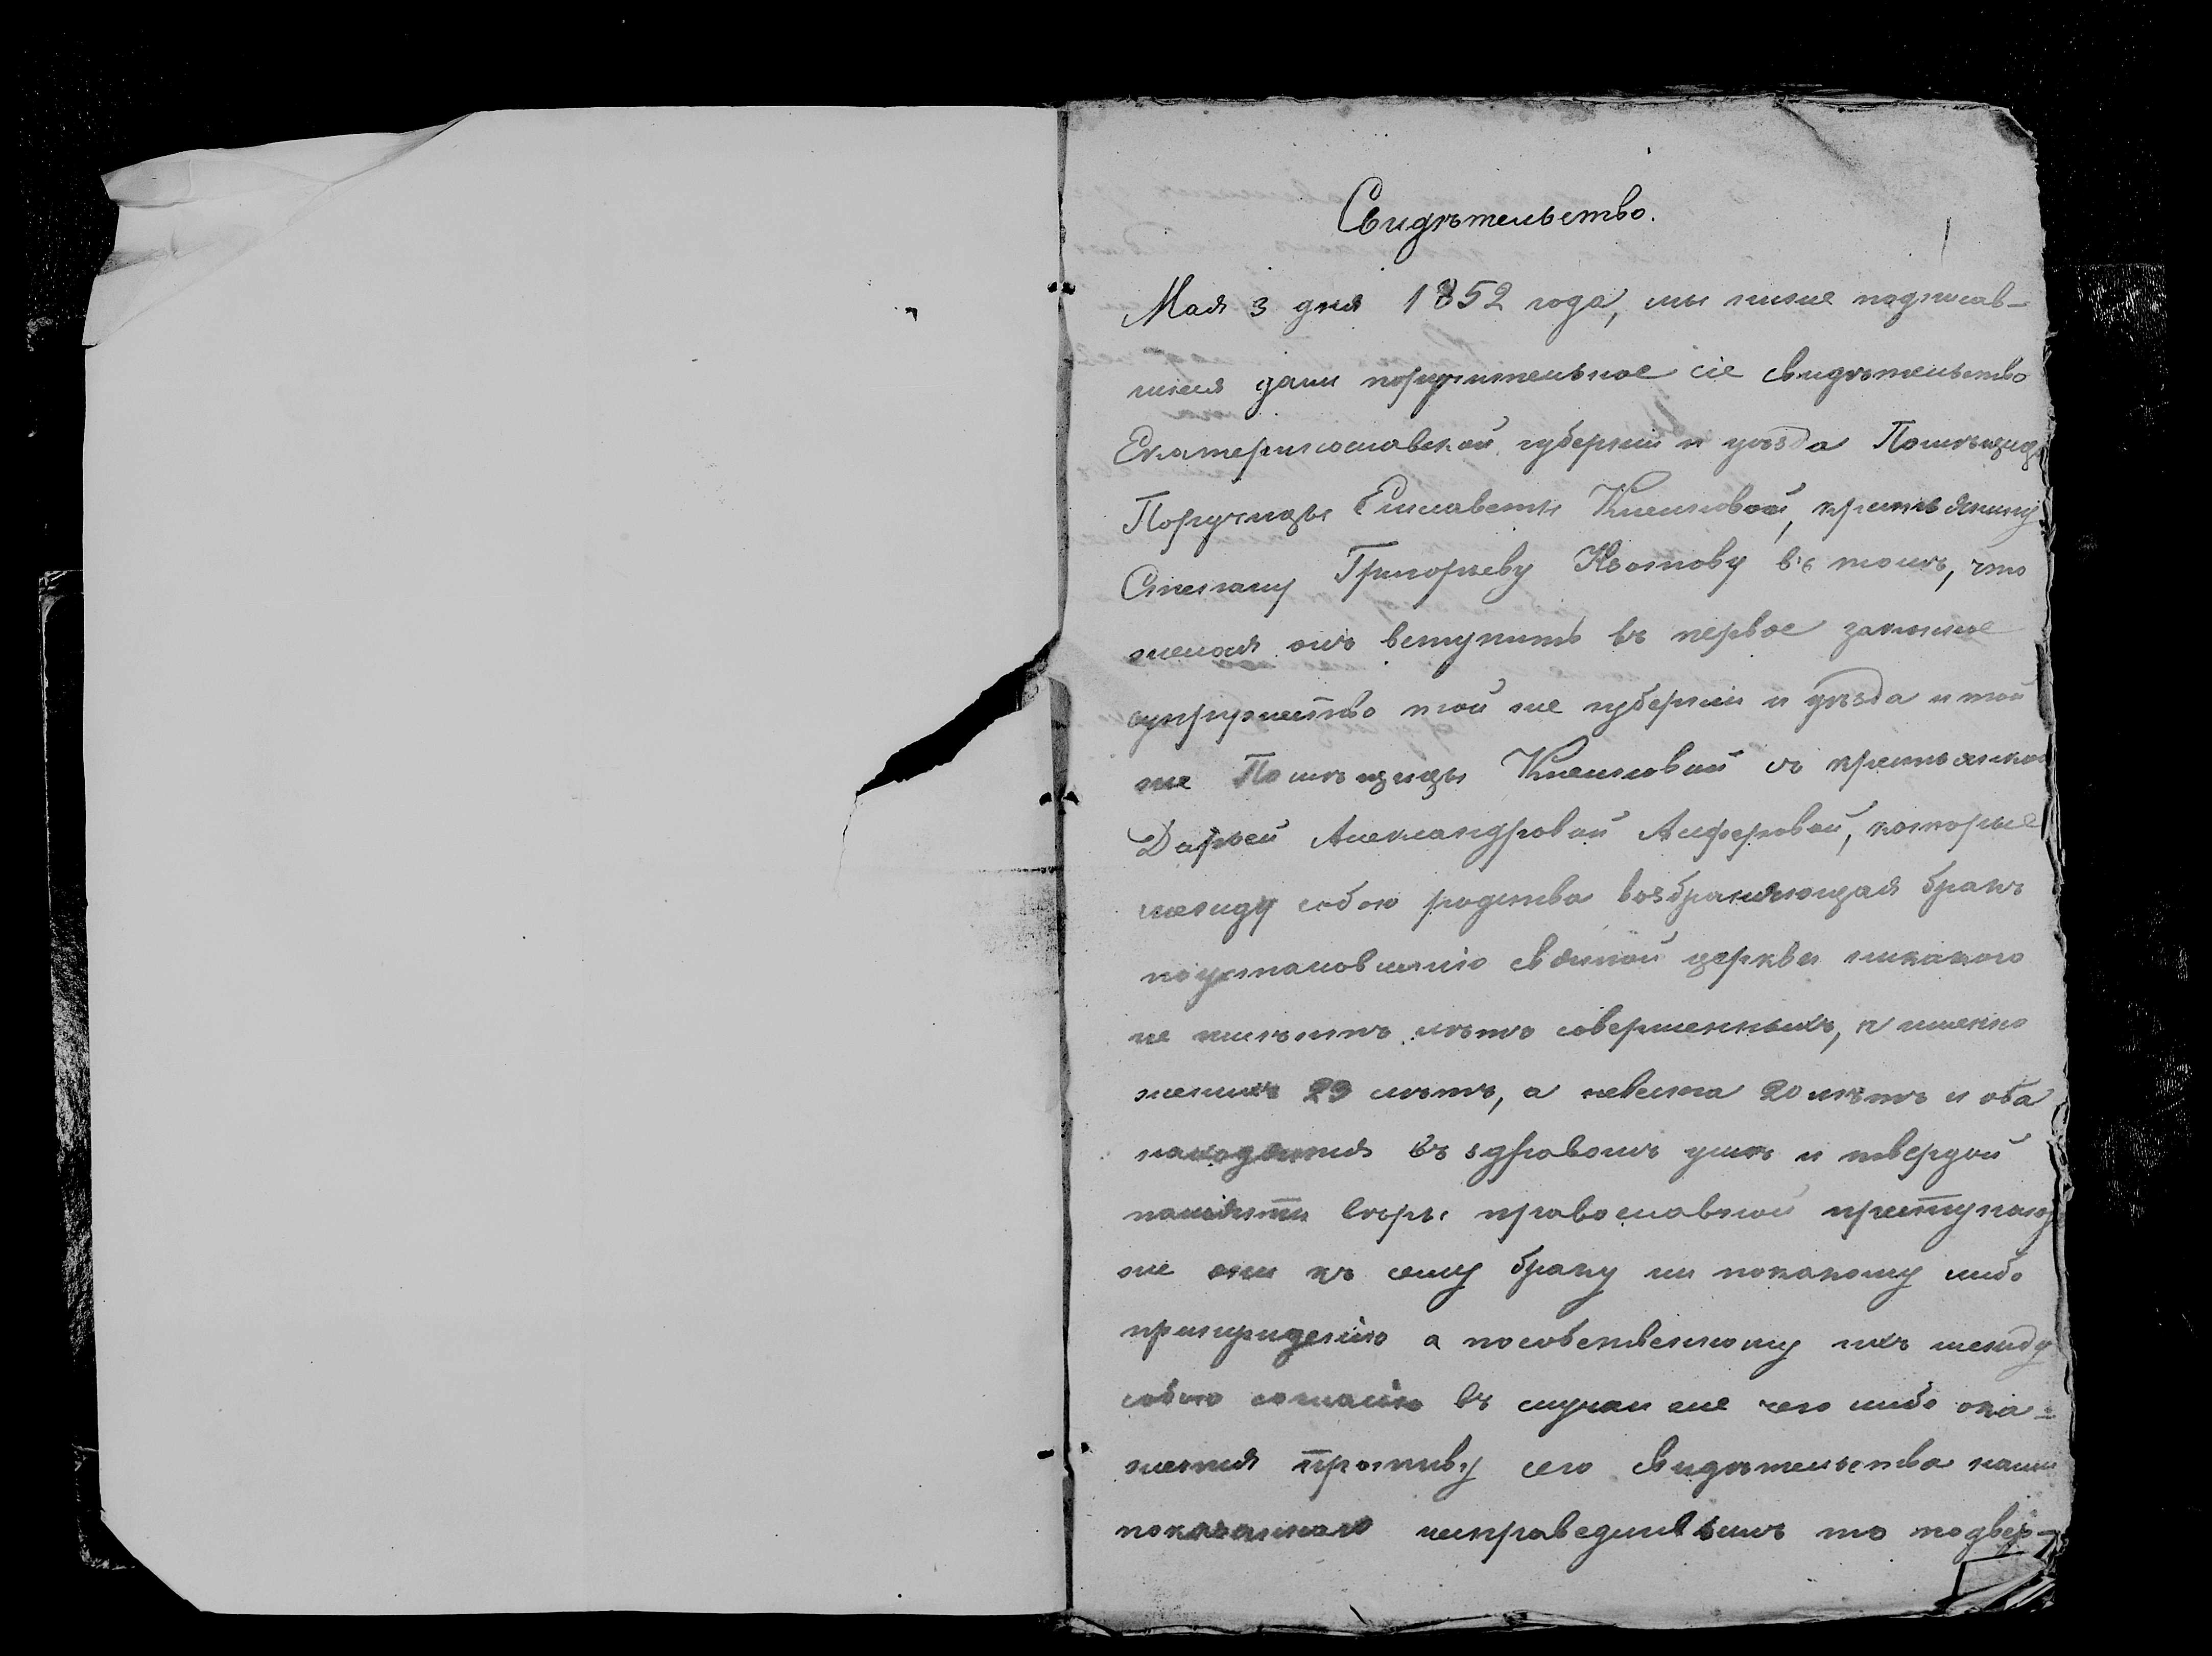 Свидѣтельство.
Мая 3 дня 1852 года, мы ниже подписав-
шіеся дали поручительное сіе свидѣтельство
Екатеринославской губерніи и уѣзда Помѣщицы
Поручицы Елисаветы крестьянину
Степану Григорьеву въ томъ, что
желая онъ вступить въ первое законное
супружество той же губерніи и уѣзда и той
же Помѣщицы съ крестьянкою
Дарьей Александровой Алферовой, которые
между собою родства возбраняющая бракъ
по установленію святой церкви никакого
не имѣютъ лѣтъ совершенныхъ, и именно
женихъ 23 лѣтъ, а невеста 20 лѣтъ и оба
находятся въ здровомъ умѣ и твердой
памяти веры православной преступаютъ
же они къ сему браку ни покакому либо
принуждению а пособственному ихъ между
собою согласію въ случаи же чего либо ока-
жется противу сего свидѣтельства нами
показаннаго несправедливымъ то подвер-